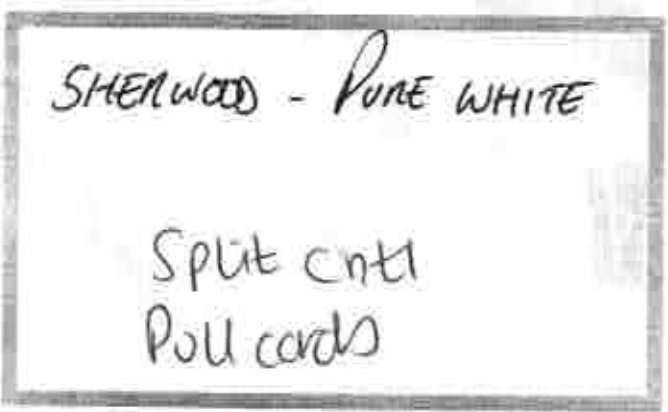 SHERWOOD - PURE WHITE
Split cntl
Pull cords